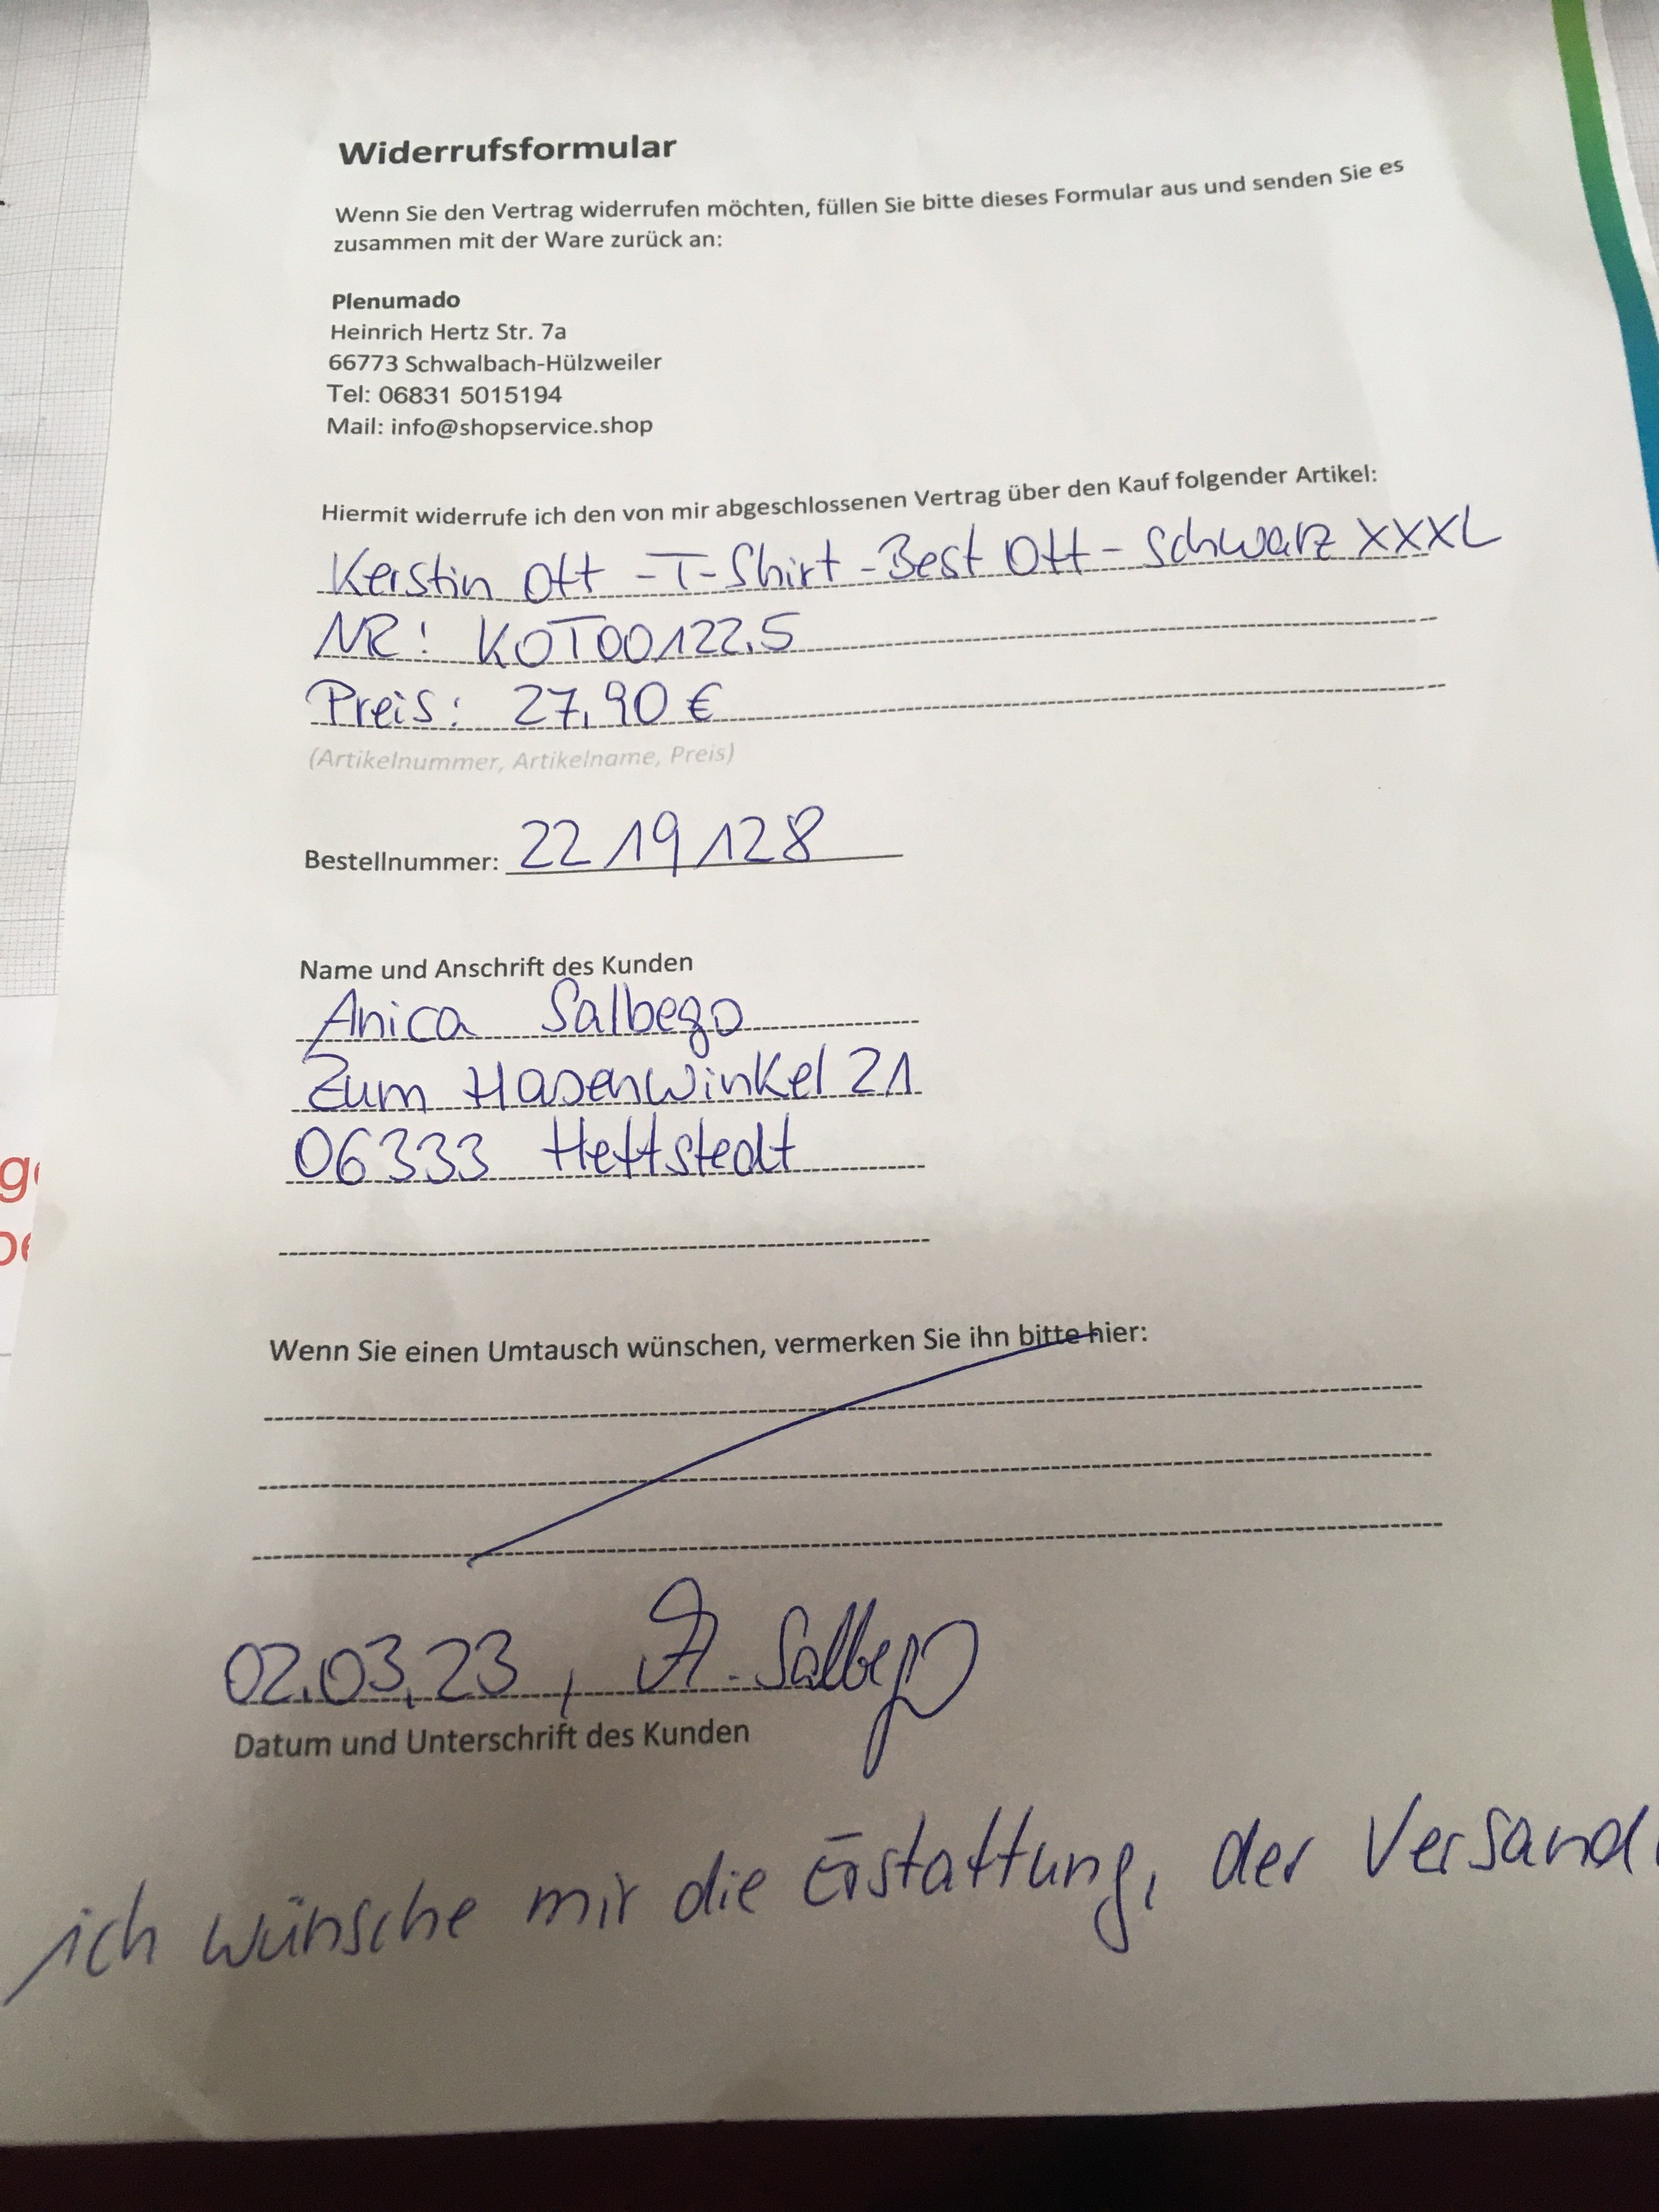 Widerrufsformular
Wenn Sie den Vertrag widerrufen möchten, füllen Sie bitte dieses Formular aus und senden Sie es
zusammen mit der Ware zurück an:
Plenumado
Heinrich Hertz Str. 7a
66773 Schwalbach-Hülzweiler
Tel: 06831 5015194
Mail: info@shopservice.shop
Hiermit widerrufe ich den von mir abgeschlossenen Vertrag über den Kauf folgender Artikel:
Kerstin Ott - T-Shirt - Best Ott - Schwarz XXXL
NR: KOT00122.5
Preis: 27,90 €
(Artikelnummer, Artikelname, Preis)
Bestellnummer: 2219128
Name und Anschrift des Kunden
Anica Salbego
Zum Hasenwinkel 21
06333 Hettstedt
Wenn Sie einen Umtausch wünschen, vermerken Sie ihn bitte hier:
02.03.23, A. Salbego
Datum und Unterschrift des Kunden
ich wünsche mir die Erstattung, der Versand